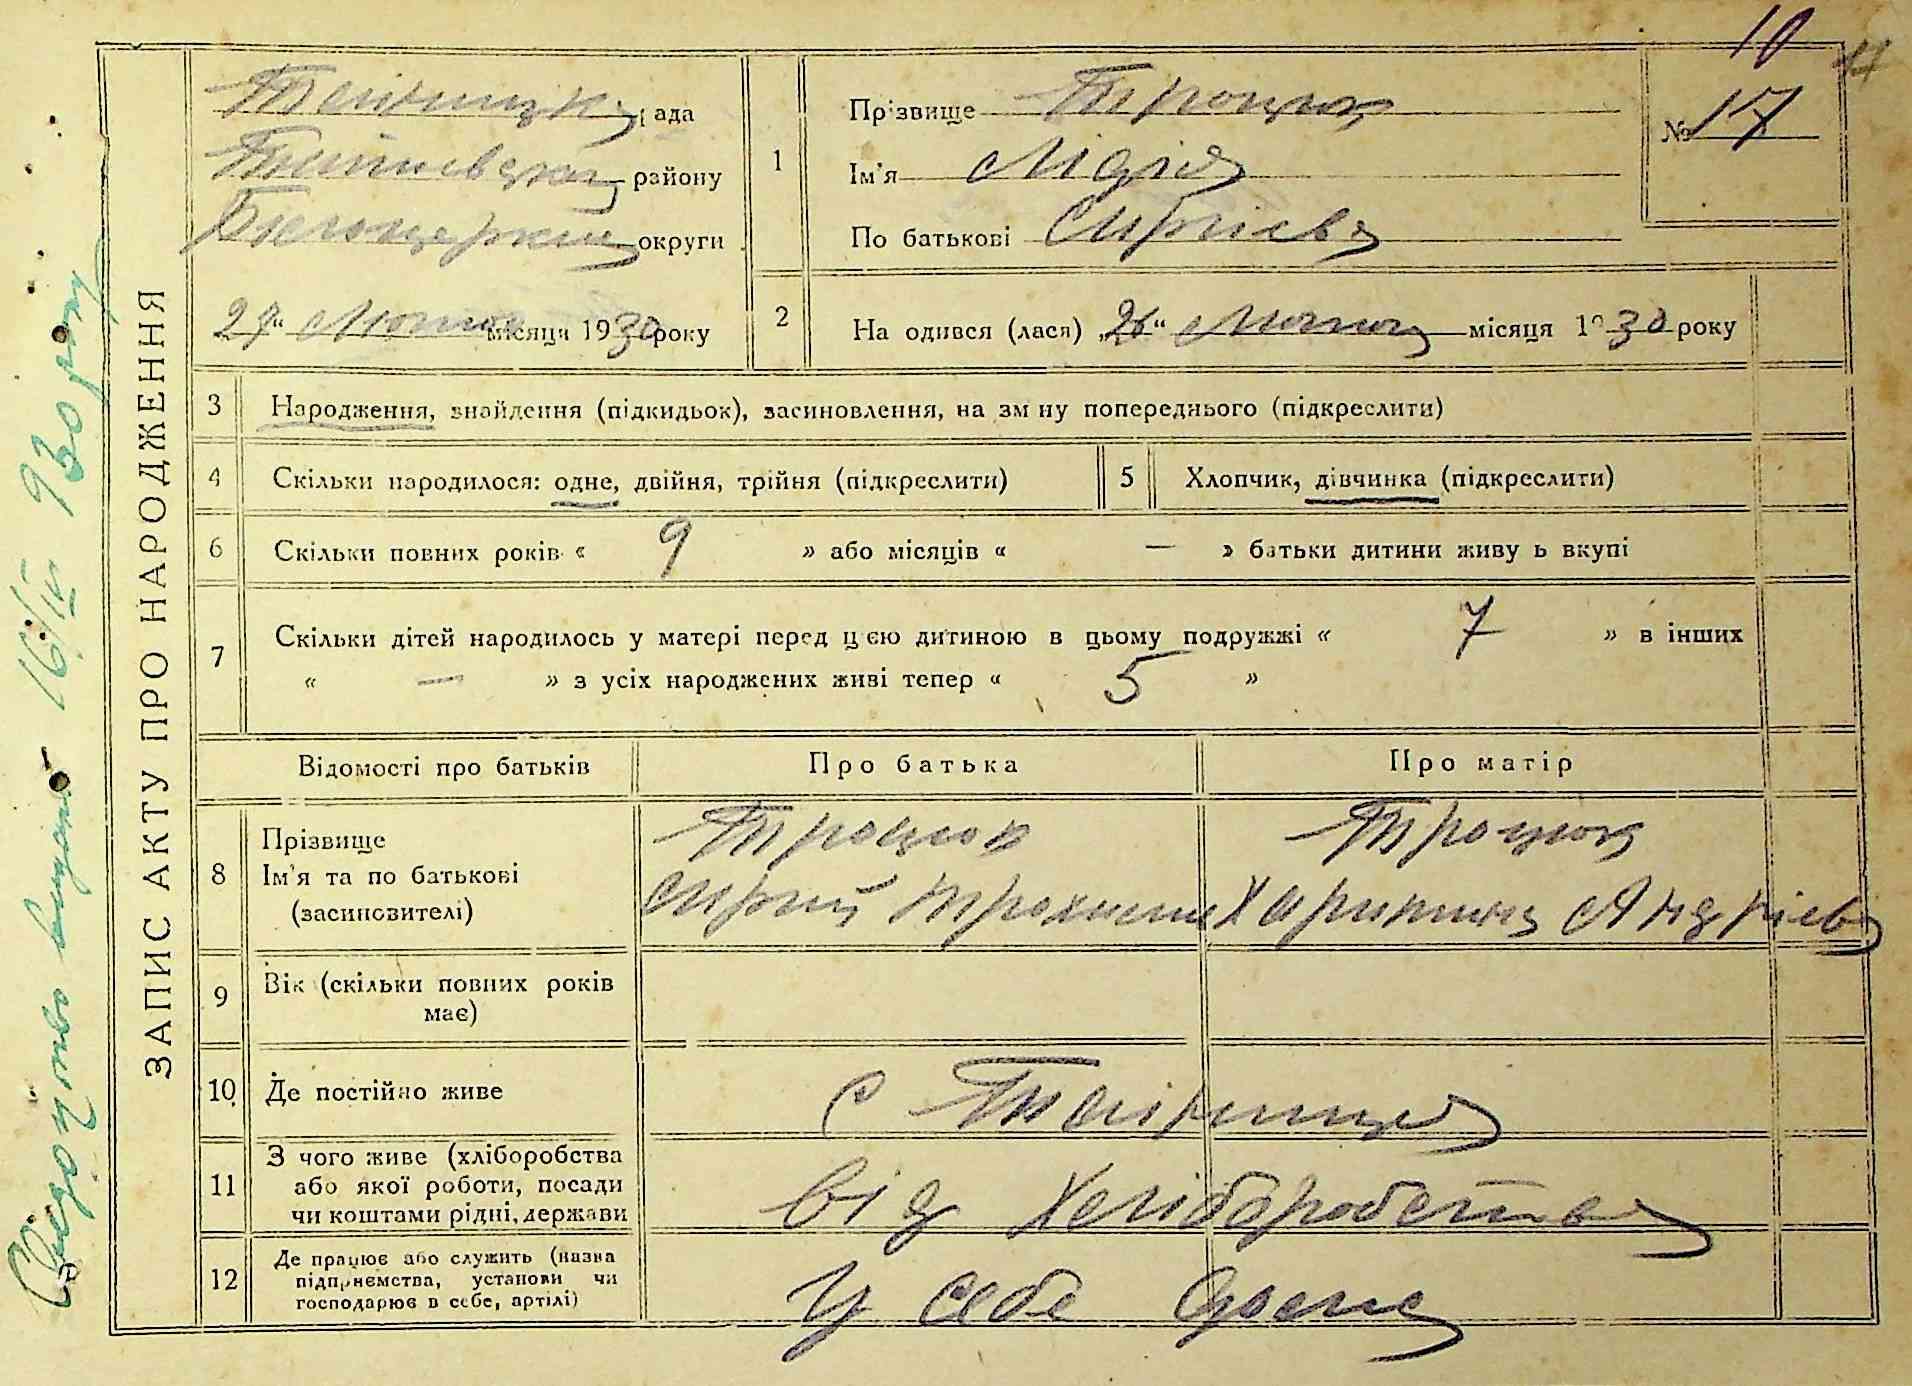 10
11
Тайницька рада
Тетиевськог району
Білоцерківс округи
29 " Лютого місяця 1930 року
1
Прізвище Троцюк
Ім'я Лідія
По батькові Сергієва
№ 17
2
На одився (лася) „26" Лютого місяця 1930 року
ЗАПИС АКТУ ПРО НАРОДЖЕННЯ
3 Народження, знайдення (підкидьок), засиновлення, на зм ну попереднього (підкреслити)
4 Скільки народилося: одне, двійня, трійня (підкреслити)
5 Хлопчик, дівчинка (підкреслити)
6 Скільки повних років « 9 » або місяців « — » батьки дитини живу ь вкупі
7 Скільки дітей народилось у матері перед цією дитиною в цьому подружжі « 7 » в інших
« — » з усіх народжених живі тепер « 5 »
Відомості про батьків Про батька Про матір
8
Прізвище
Ім'я та по батькові
(засиновителі)
Троцюк
Сергій Трохимов
Троцюк
Харитина Андрієва
9 Вік (скільки повних років
має)
10 Де постійно живе с Тайниця
11
З чого живе (хліборобства
або якої роботи, посади
чи коштами рідні, держави
від Хліборобства
12
Де працює або служить (назва
підприємства, установи чи
господарює в себе, артілі)
У себе дома
видано 16/IV 930 року